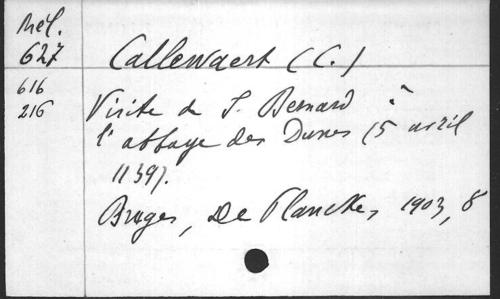 Mél.
627
Callewaert (C.)
616
216
Visite de S. Bernard à
l'abbaye des Dunes (5 avril
1139).
Bruges, De Plancke, 1903, 8°